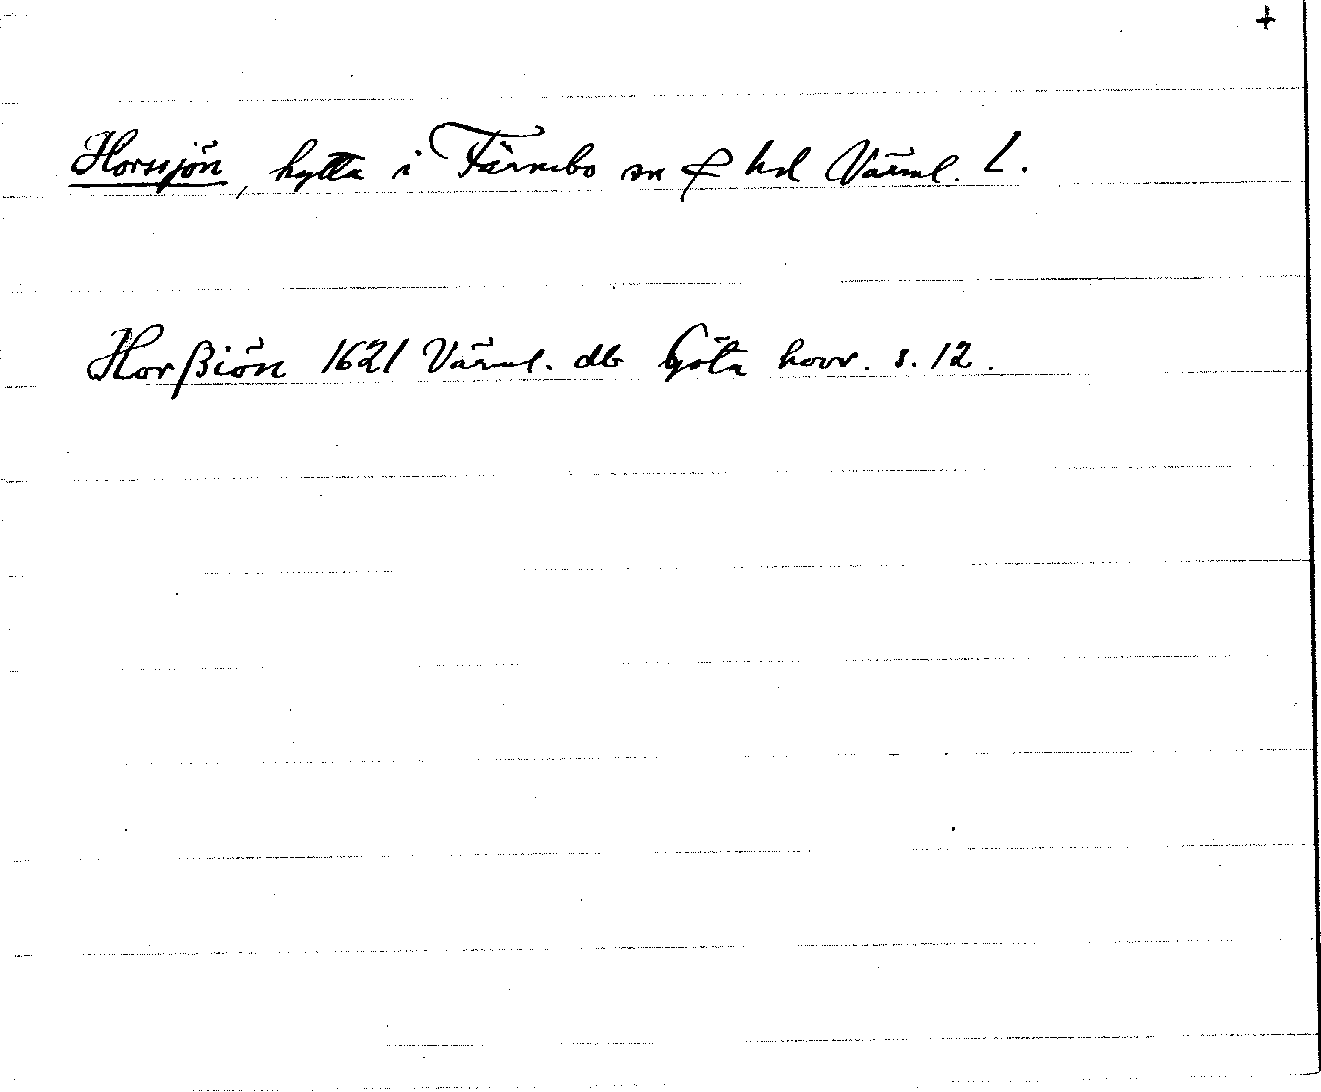 +
Horssjön, hytta i Färnebo sn & hd Värml. L.
Horßiön 1621 Värml. db Göta hovr. s. 12.